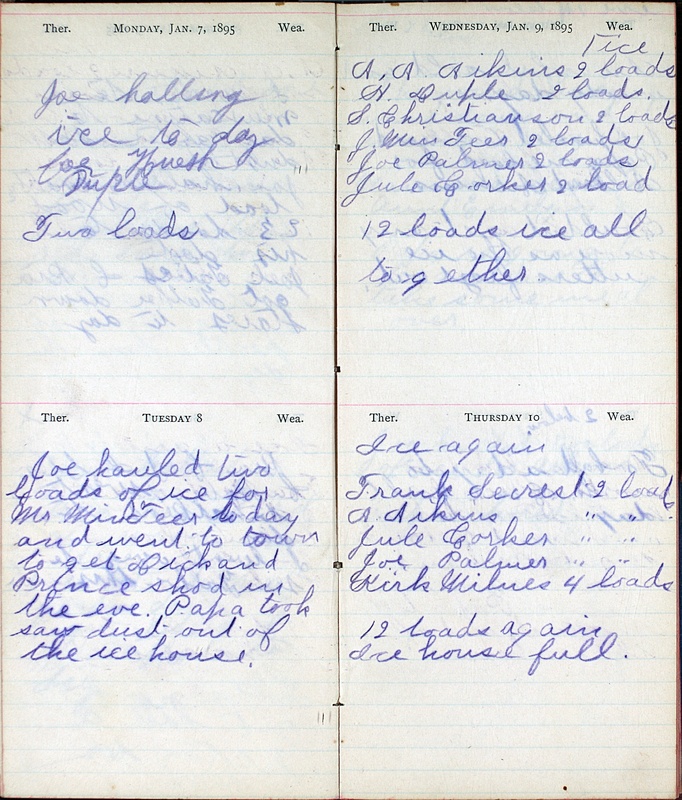 Ther. MONDAY, JAN. 7, 1895 Wea.
Joe halling
ice to day
for
Duple
Two loads
Ther. TUESDAY 8 Wea.
Joe hauled two
loads of ice for
Mr MinTeer today
and went to town
to get Dick and
Prince shod in
the eve. Papa took
saw dust out of
the ice house.
Ther. WEDNESDAY, JAN. 9, 1895 Wea.
Tice
A. A. Aikins 2 loads
H. Duple 2 loads.
S. Christianson 2 loads
J. MinTeer 2 loads
Joe Palmer 2 loads
Jule Corker 2 load
12 loads ice all
together
Ther. THURSDAY 10 Wea.
Ice again
Frank Secrest 2 load
A. Aikins " "
Jule Corker " "
Joe Palmer " "
Kirk Milnes 4 loads
12 loads again
Ice house full.